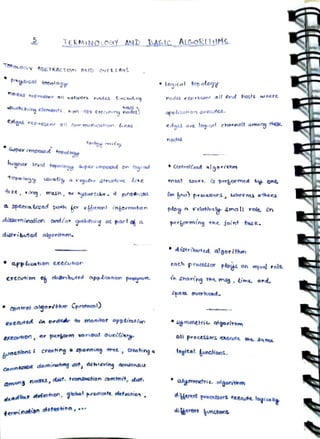 5 TERMINOLOGY AND BASIC ALGORITHMS
TOPOLOGY ABSTRACTION AND OVERLAYS
* Physical topology
nodes represent all network nodes including
switching elements, non-app executing nodes
edges represent all communication links
* Superimposed topology
higher level topology superimposed on logical
topology usually a regular structure like
tree, ring, mesh, or hypercube. It provides
a specialized path for efficient information
dissemination and/or gathering as part of a
distributed algorithm.
* application execution
execution of distributed application program
* control algorithm (protocol)
executed in order to monitor application
execution, or perform various auxiliary
functions: creating a spanning tree, creating a
connected dominating set, achieving consensus
among nodes, dist. transaction commit, dist.
deadlock detection, global predicate detection,
termination detection, ...
* logical topology
nodes represent all end hosts where
application executes.
edges are logical channels among these
nodes
* centralized algorithm
most work is performed by one
(or few) processors, whereas others
play a relatively small role in
performing the joint task.
* distributed algorithm
each processor plays an equal role
in sharing the msg, time and
space overhead.
* symmetric algorithm
all processors execute the same
logical functions.
* asymmetric algorithm
different processors execute logically
different functions